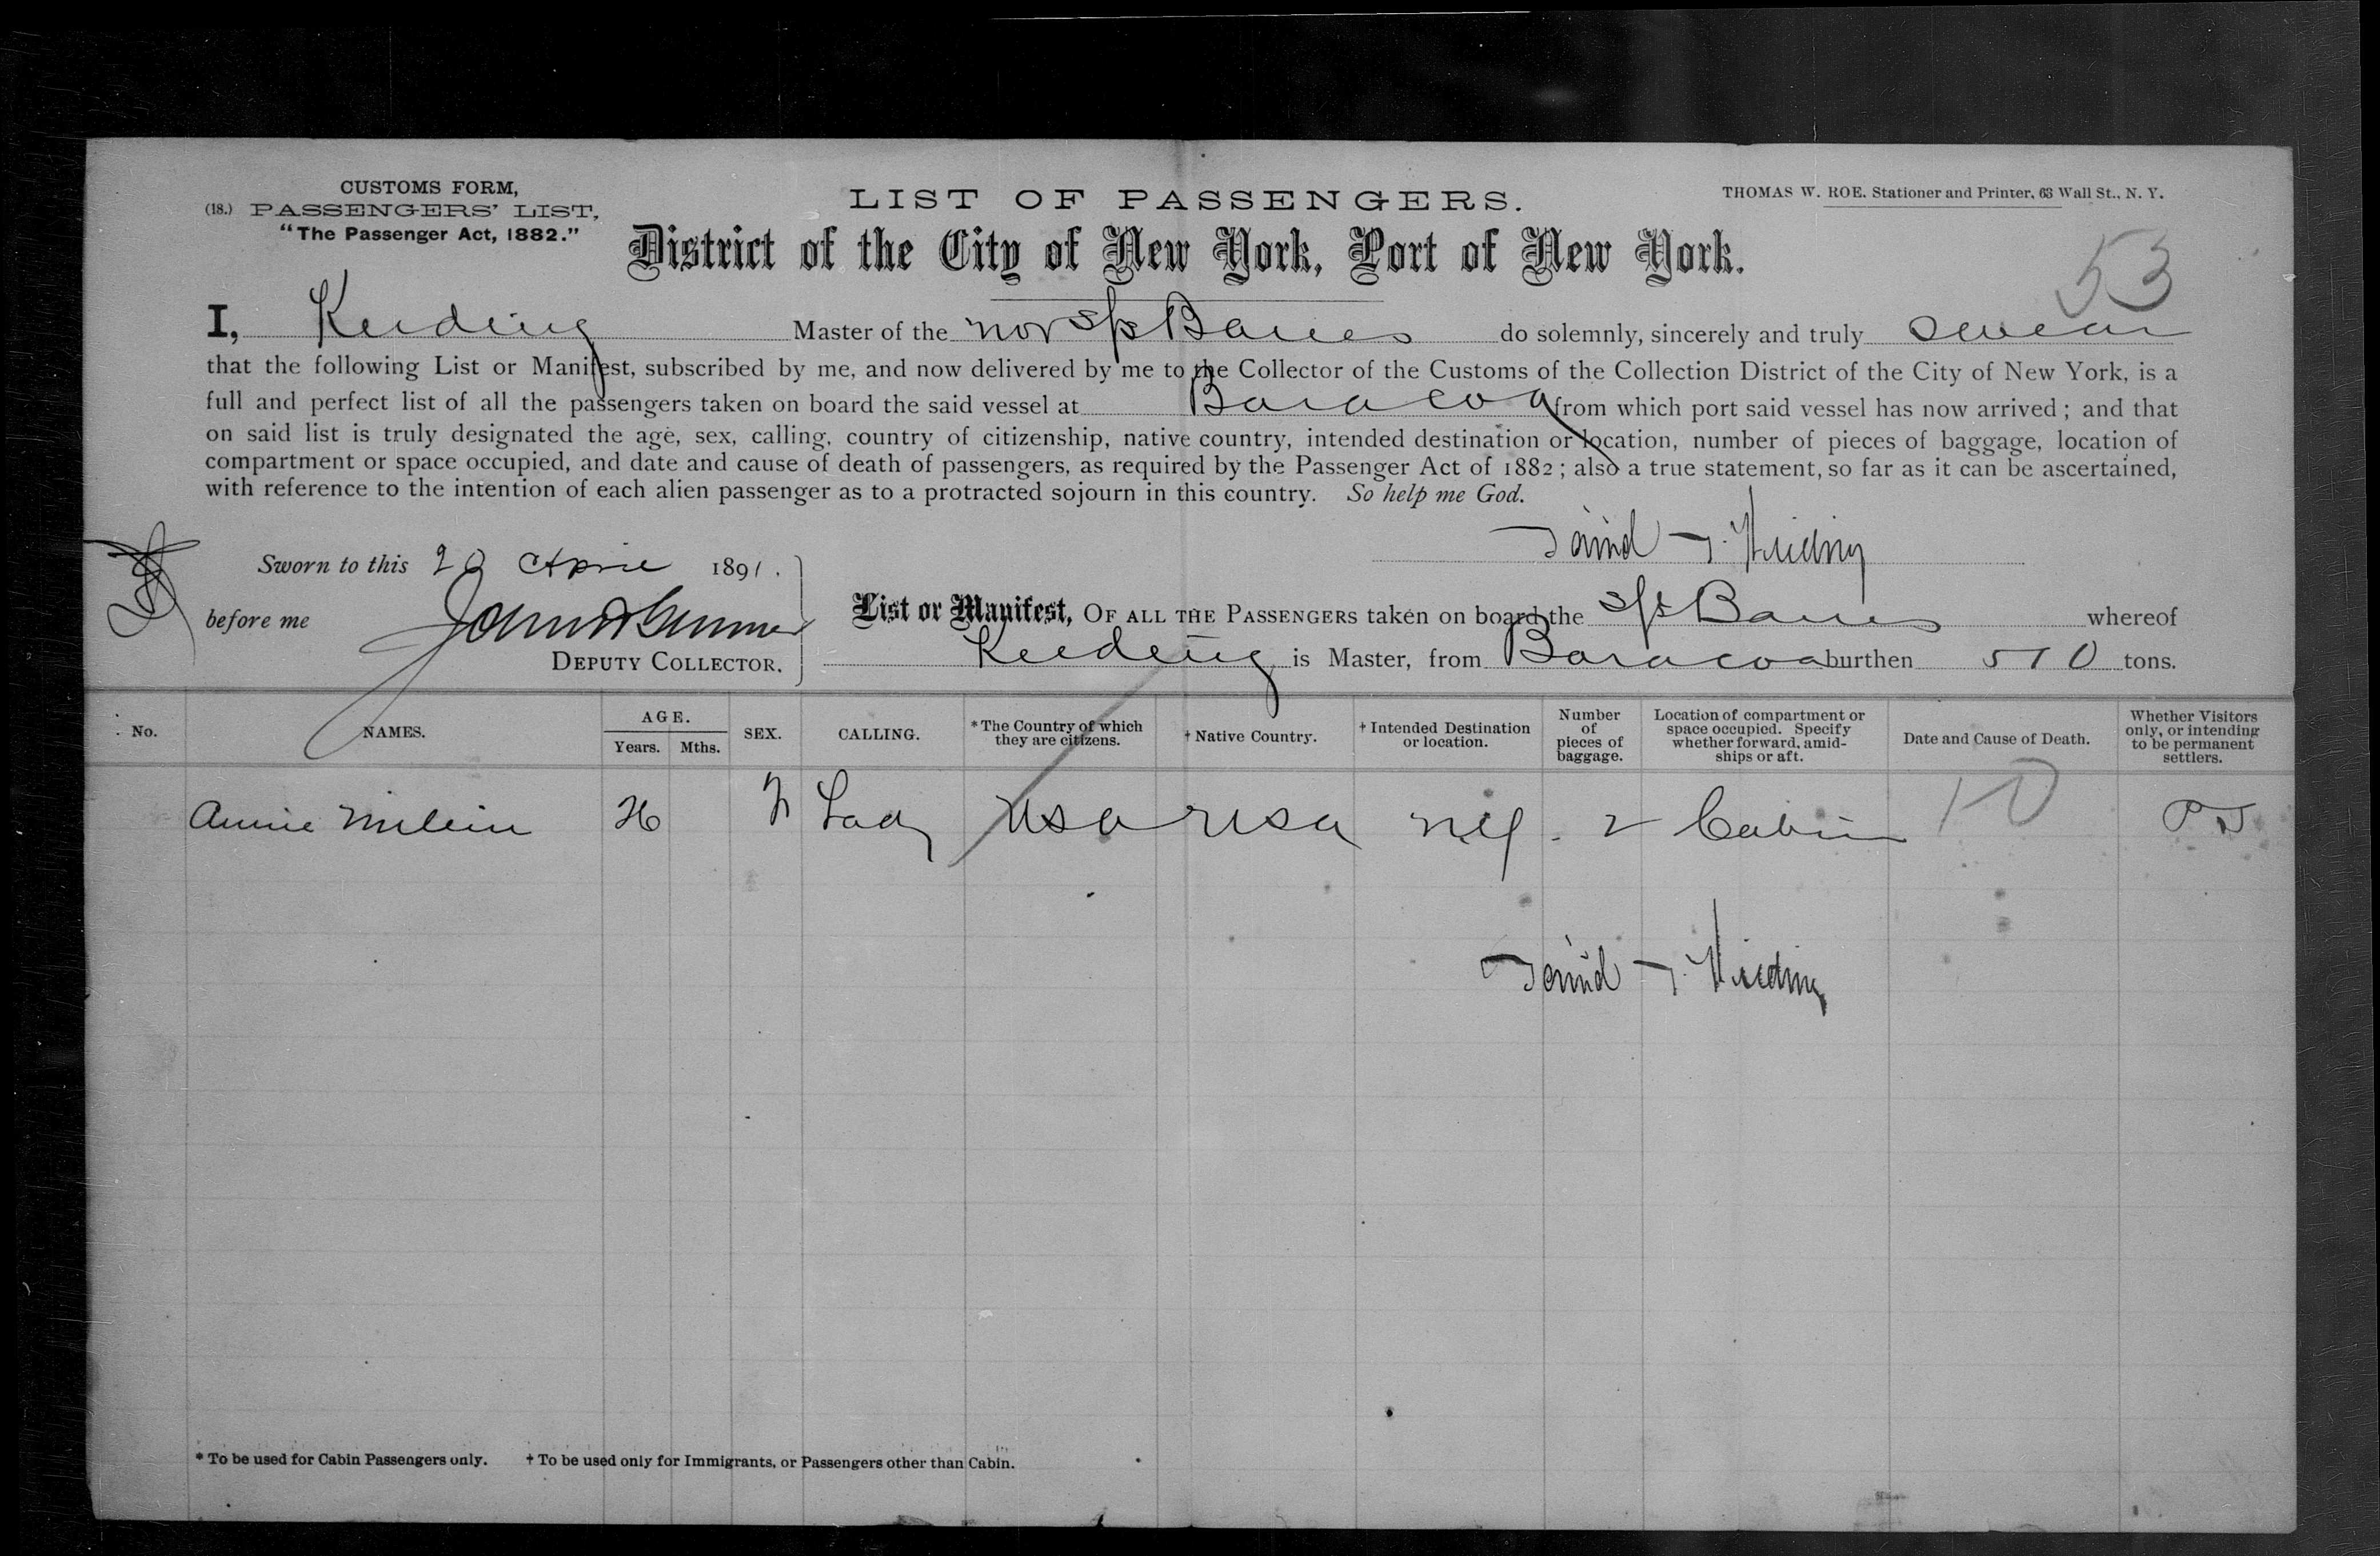 CUSTOMS FORM,
(18.) PASSENGERS' LIST,
"The Passenger Act, 1882."
LIST OF PASSENGERS.
THOMAS W. ROE. Stationer and Printer, 63 Wall St., N. Y.
District of the City of New York, Port of New York.
53
I, Keeding Master of the nor S/s Banes do solemnly, sincerely and truly swear
that the following List or Manifest, subscribed by me, and now delivered by me to the Collector of the Customs of the Collection District of the City of New York, is a
full and perfect list of all the passengers taken on board the said vessel at Baracoa from which port said vessel has now arrived; and that
on said list is truly designated the age, sex, calling, country of citizenship, native country, intended destination or location, number of pieces of baggage, location of
compartment or space occupied, and date and cause of death of passengers, as required by the Passenger Act of 1882; also a true statement, so far as it can be ascertained,
with reference to the intention of each alien passenger as to a protracted sojourn in this country. So help me God.
Sworn to this 20 April 1891.
before me
DEPUTY COLLECTOR.
List or Manifest, OF ALL THE PASSENGERS taken on board the S/s Banes whereof
Keeding is Master, from Baracoa burthen 510 tons.
No. NAMES. AGE. Years. Mths. SEX. CALLING. * The Country of which they are citizens. † Native Country. † Intended Destination or location. Number of pieces of baggage. Location of compartment or space occupied. Specify whether forward, amid-ships or aft. Date and Cause of Death. Whether Visitors only, or intending to be permanent settlers.
Annie 26 F Lady usa usa ny. 2 Cabin 10
* To be used for Cabin Passengers only. † To be used only for Immigrants, or Passengers other than Cabin.